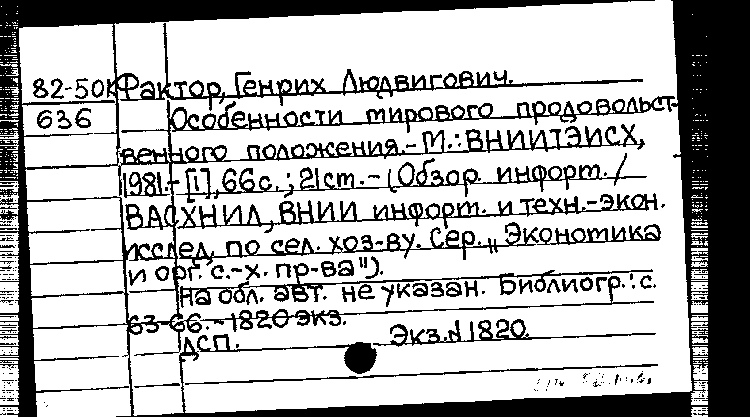 82-50К Фактор, Генрих Людвигович.
636 Особенности мирового продовольст-
венного положения.-М.: ВНИИТЭИСХ,
1981.-[1],66с.; 21см.-(Обзор. информ./
ВАСХНИЛ, ВНИИ информ. и техн.-экон.
исслед. по сел. хоз-ву. Сер. „Экономика
и орг. с.-х. пр-ва").
На обл. авт. не указан. Библиогр.: с.
63-66.-1820 экз.
ДСП. Экз.N1820.